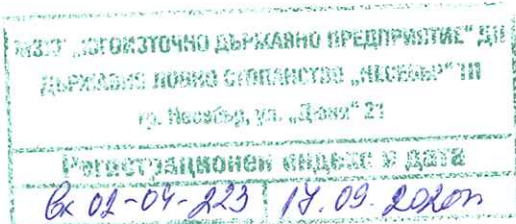 МЗХГ „ЮГОИЗТОЧНО ДЪРЖАВНО ПРЕДПРИЯТИЕ" ДП
ДЪРЖАВНО ЛОВНО СТОПАНСТВО „НЕСЕБЪР" ТП
гр. Несебър, ул. „Дюни" 21
Регистрационен индекс и дата
Вх 02-04-223 17.09.2020г